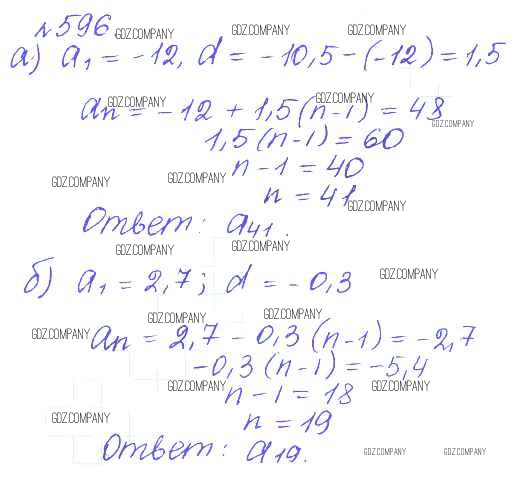 №596 GDZ.COMPANY GDZ.COMPANY GDZ.COMPANY
а) a₁ = -12, d = -10,5-(-12) = 1,5
GDZ.COMPANY GDZ.COMPANY
aₙ = -12 + 1,5(n-1) = 48
GDZ.COMPANY
1,5(n-1) = 60
GDZ.COMPANY GDZ.COMPANY n-1 = 40
n = 41
GDZ.COMPANY
Ответ: a₄₁.
GDZ.COMPANY GDZ.COMPANY
б) a₁ = 2,7; d = -0,3 GDZ.COMPANY
GDZ.COMPANY GDZ.COMPANY
GDZ.COMPANY aₙ = 2,7 - 0,3(n-1) = -2,7
-0,3(n-1) = -5,4
GDZ.COMPANY GDZ.COMPANY
n-1 = 18
GDZ.COMPANY n = 19
Ответ: a₁₉.
GDZ.COMPANY GDZ.COMPANY